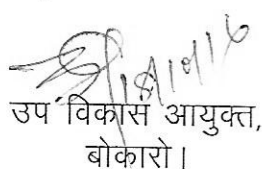 उप विकास आयुक्त,
बोकारो।